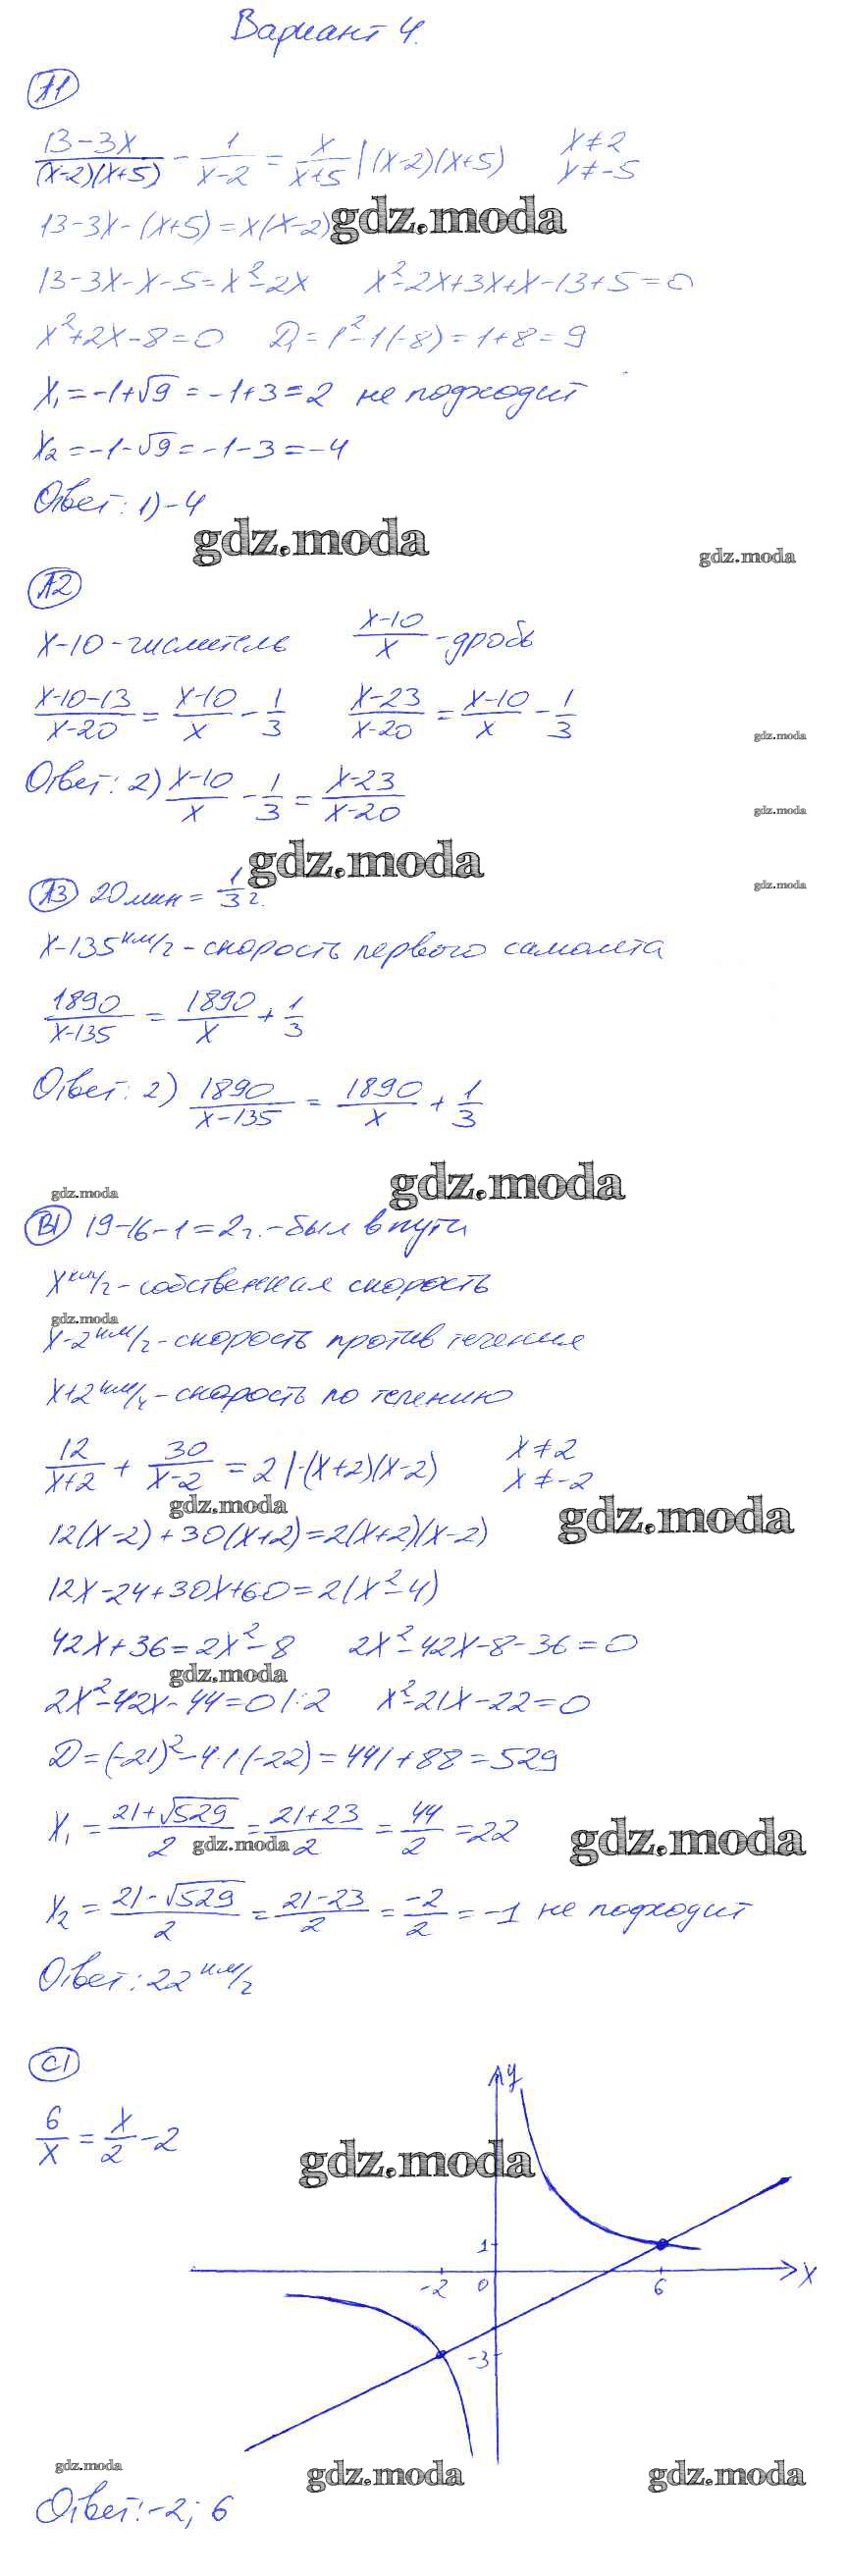 Вариант 4.
А1
(13-3x)/((x-2)(x+5)) - 1/(x-2) = x/(x+5) | (x-2)(x+5)   x≠2
x≠-5
13-3x-(x+5)=x(x-2)
gdz.moda
13-3x-x-5=x²-2x   x²-2x+3x+x-13+5=0
x²+2x-8=0   D₁=1²-1(-8)=1+8=9
x₁=-1+√9=-1+3=2 не подходит
x₂=-1-√9=-1-3=-4
Ответ: 1) -4
gdz.moda
gdz.moda
А2
x-10 - числитель   (x-10)/x - дробь
(x-10-13)/(x-20) = (x-10)/x - 1/3   (x-23)/(x-20) = (x-10)/x - 1/3
gdz.moda
Ответ: 2) (x-10)/x - 1/3 = (x-23)/(x-20)
gdz.moda
gdz.moda
gdz.moda
А3 20 мин = 1/3 г.
x-135 км/г - скорость первого самолета
1890/(x-135) = 1890/x + 1/3
Ответ: 2) 1890/(x-135) = 1890/x + 1/3
gdz.moda
gdz.moda
В1 19-16-1=2г. - был в пути
x км/г - собственная скорость
gdz.moda
x-2 км/г - скорость против течения
x+2 км/ч - скорость по течению
12/(x+2) + 30/(x-2) = 2 |·(x+2)(x-2)   x≠2
x≠-2
gdz.moda
gdz.moda
12(x-2)+30(x+2)=2(x+2)(x-2)
12x-24+30x+60=2(x²-4)
42x+36=2x²-8   2x²-42x-8-36=0
gdz.moda
2x²-42x-44=0 |:2   x²-21x-22=0
D=(-21)²-4·1·(-22)=441+88=529
x₁ = (21+√529)/2 = (21+23)/2 = 44/2 = 22
gdz.moda
gdz.moda
x₂ = (21-√529)/2 = (21-23)/2 = -2/2 = -1 не подходит
Ответ: 22 км/г
С1
y
6/x = x/2 - 2
gdz.moda
1
-2
0
6
x
-3
gdz.moda
gdz.moda
gdz.moda
Ответ: -2; 6